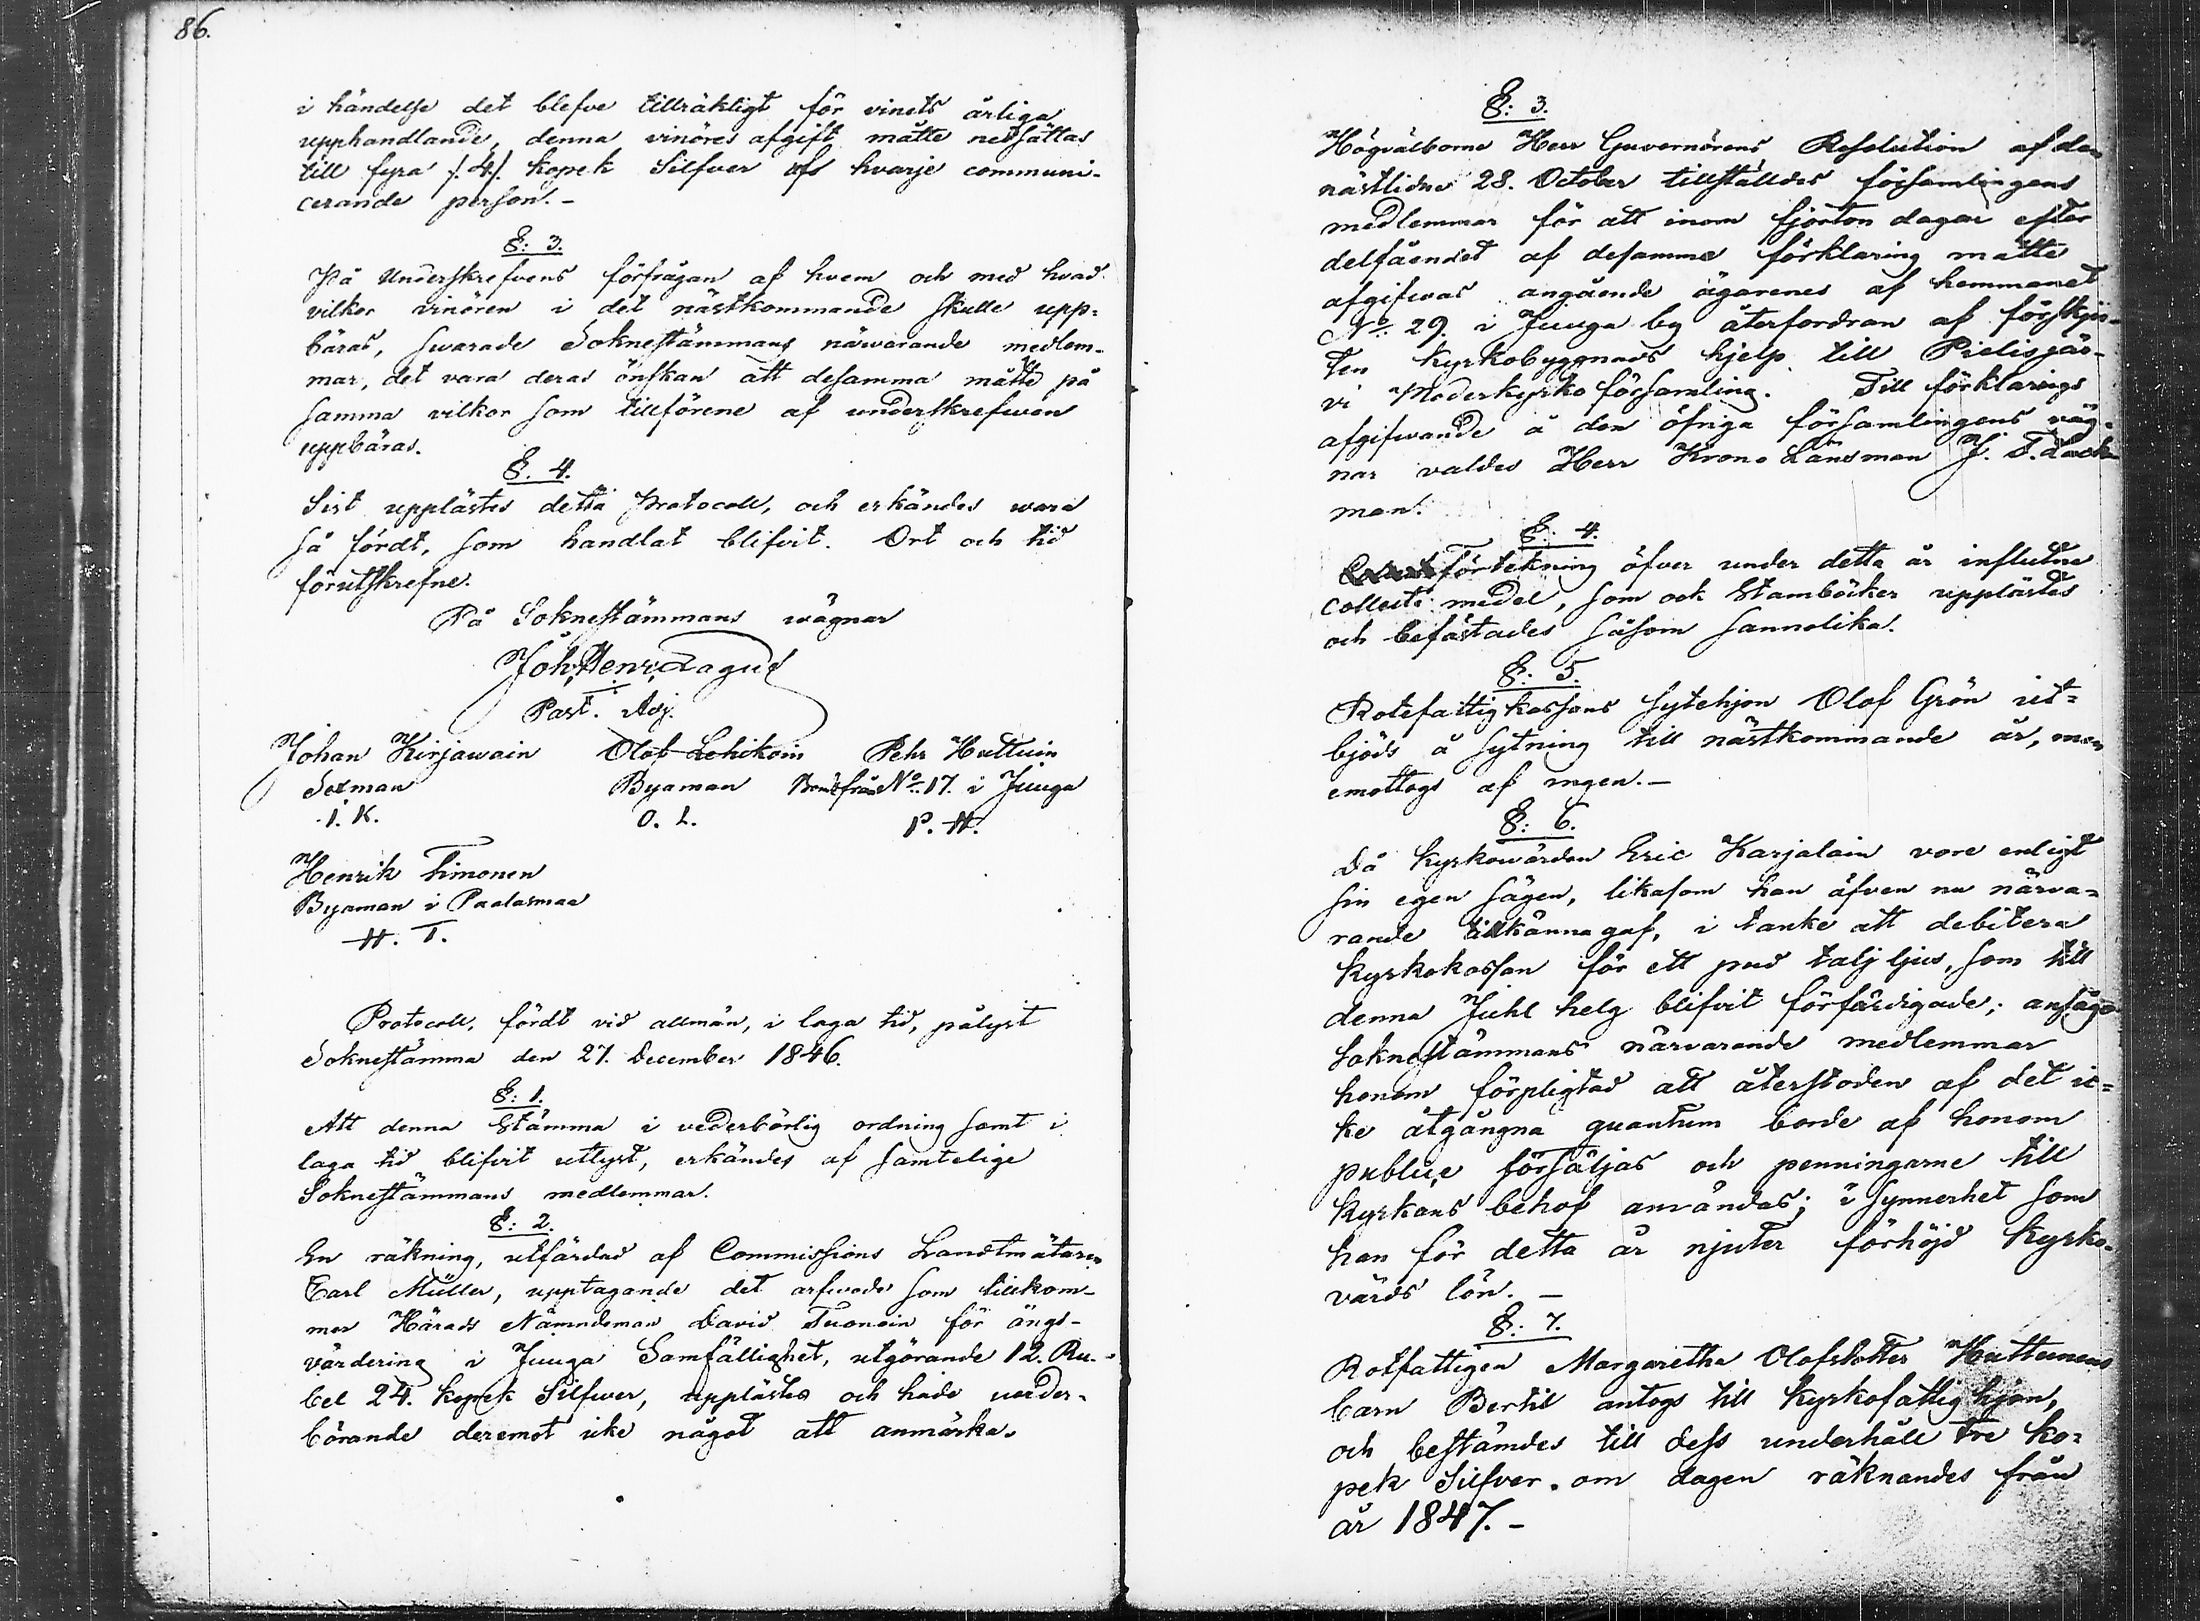 86.
i händelse det blefve tillräktigt för vinets årliga
upphandlande, denna vinöres afgift måtte nedsättas
till fyra /:4/: kopek Silfver af hvarje communi-
cerande person. -
§: 3.
På Underskrefvens förfrågan af hvem och med hvad
vilkor vinören i det nästkommande skulle upp-
bäras, swarade Soknestämmans närwarande medlem-
mar, det vara deras önskan att desamma måtte på
samma vilkor som tillförene af underskrefwen
uppbäras.
§. 4.
Sist upplästes detta Protocoll, och erkändes wara
så fördt, som handlat blifvit. Ort och tid
förutskrefne.
På Soknestämmans wägnar
Joh. Henr. Lagus
Past. Adj.
Johan Kirjawain Olof Lehikoin Pehr Huttuin
Sexman Byaman Bonde från No. 17. i Juuga
I. K. O. L. P. H.
Henrik Timonen
Byaman i Paalasmaa
H. T.
Protocoll, fördt vid allmän, i laga tid, pålyst
Soknestämma den 27. December 1846.
§: 1.
Att denna Stämma i vederbörlig ordning samt i
laga tid blifvit utlyst, erkändes af samtelige
Soknestämmans medlemmar.
§: 2.
En räkning, utfärdad af Commissions Landtmätaren
Carl Müller, upptagande det arfwode som tillkom-
mer Härads Nämndeman David Tuonoin för ängs-
värdering i Juuga Samfällighet, utgörande 12. Ru-
bel 24. kopek Silfwer, upplästes och hade veder-
börande deremot icke något att anmärka.
§: 3.
Högvälborne Herr Guvernörens Resolution af den
nästlidne 28. October tillställdes församlingens
medlemmar för att inom fjorton dagar efter
delfåendet af desamme förklaring måtte
afgifwas angående ägarenes af hemmanet
No. 29. i Juuga by återfordran af förskju-
ten kyrkobyggnads hjelp till Pielisjär-
vi Moderkyrko församling. Till förklarings
afgifwande å den öfriga församlingens väg-
nar valdes Herr Krono Länsman J. F. Lack-
man.
§: 4.
Förtekning öfver under detta år influtne
collects medel, som ock Stamböcker upplästes
och befästades såsom sannolika.
§: 5.
Rotefattigkassans sytehjon Olof Grön ut-
bjöds å sytning till nästkommande år, men
emottogs af ingen. -
§: 6.
Då kyrkowärden Eric Karjalain vore enligt
sin egen sägen, likasom han äfven nu närva-
rande tillkänna gaf, i tanke att debitera
kyrkokassan för ett pud talj ljus, som till
denna Juhl helg blifvit förfärdigade; ansågo
Soknestämmans närvarande medlemmar
honom förpligtad att återstoden af det ic-
ke åtgångna quantum borde af honom
publice försäljas och penningarne till
kyrkans behof användas; i synnerhet som
han för detta år njuter förhöjd kyrko-
värds lön. -
§: 7.
Rotfattigen Margaretha Olofsdotter Huttunens
barn Bertil antogs till kyrkofattighjon,
och bestämdes till dess underhåll tre ko-
pek Silfver om dagen räknandes från
år 1847. -